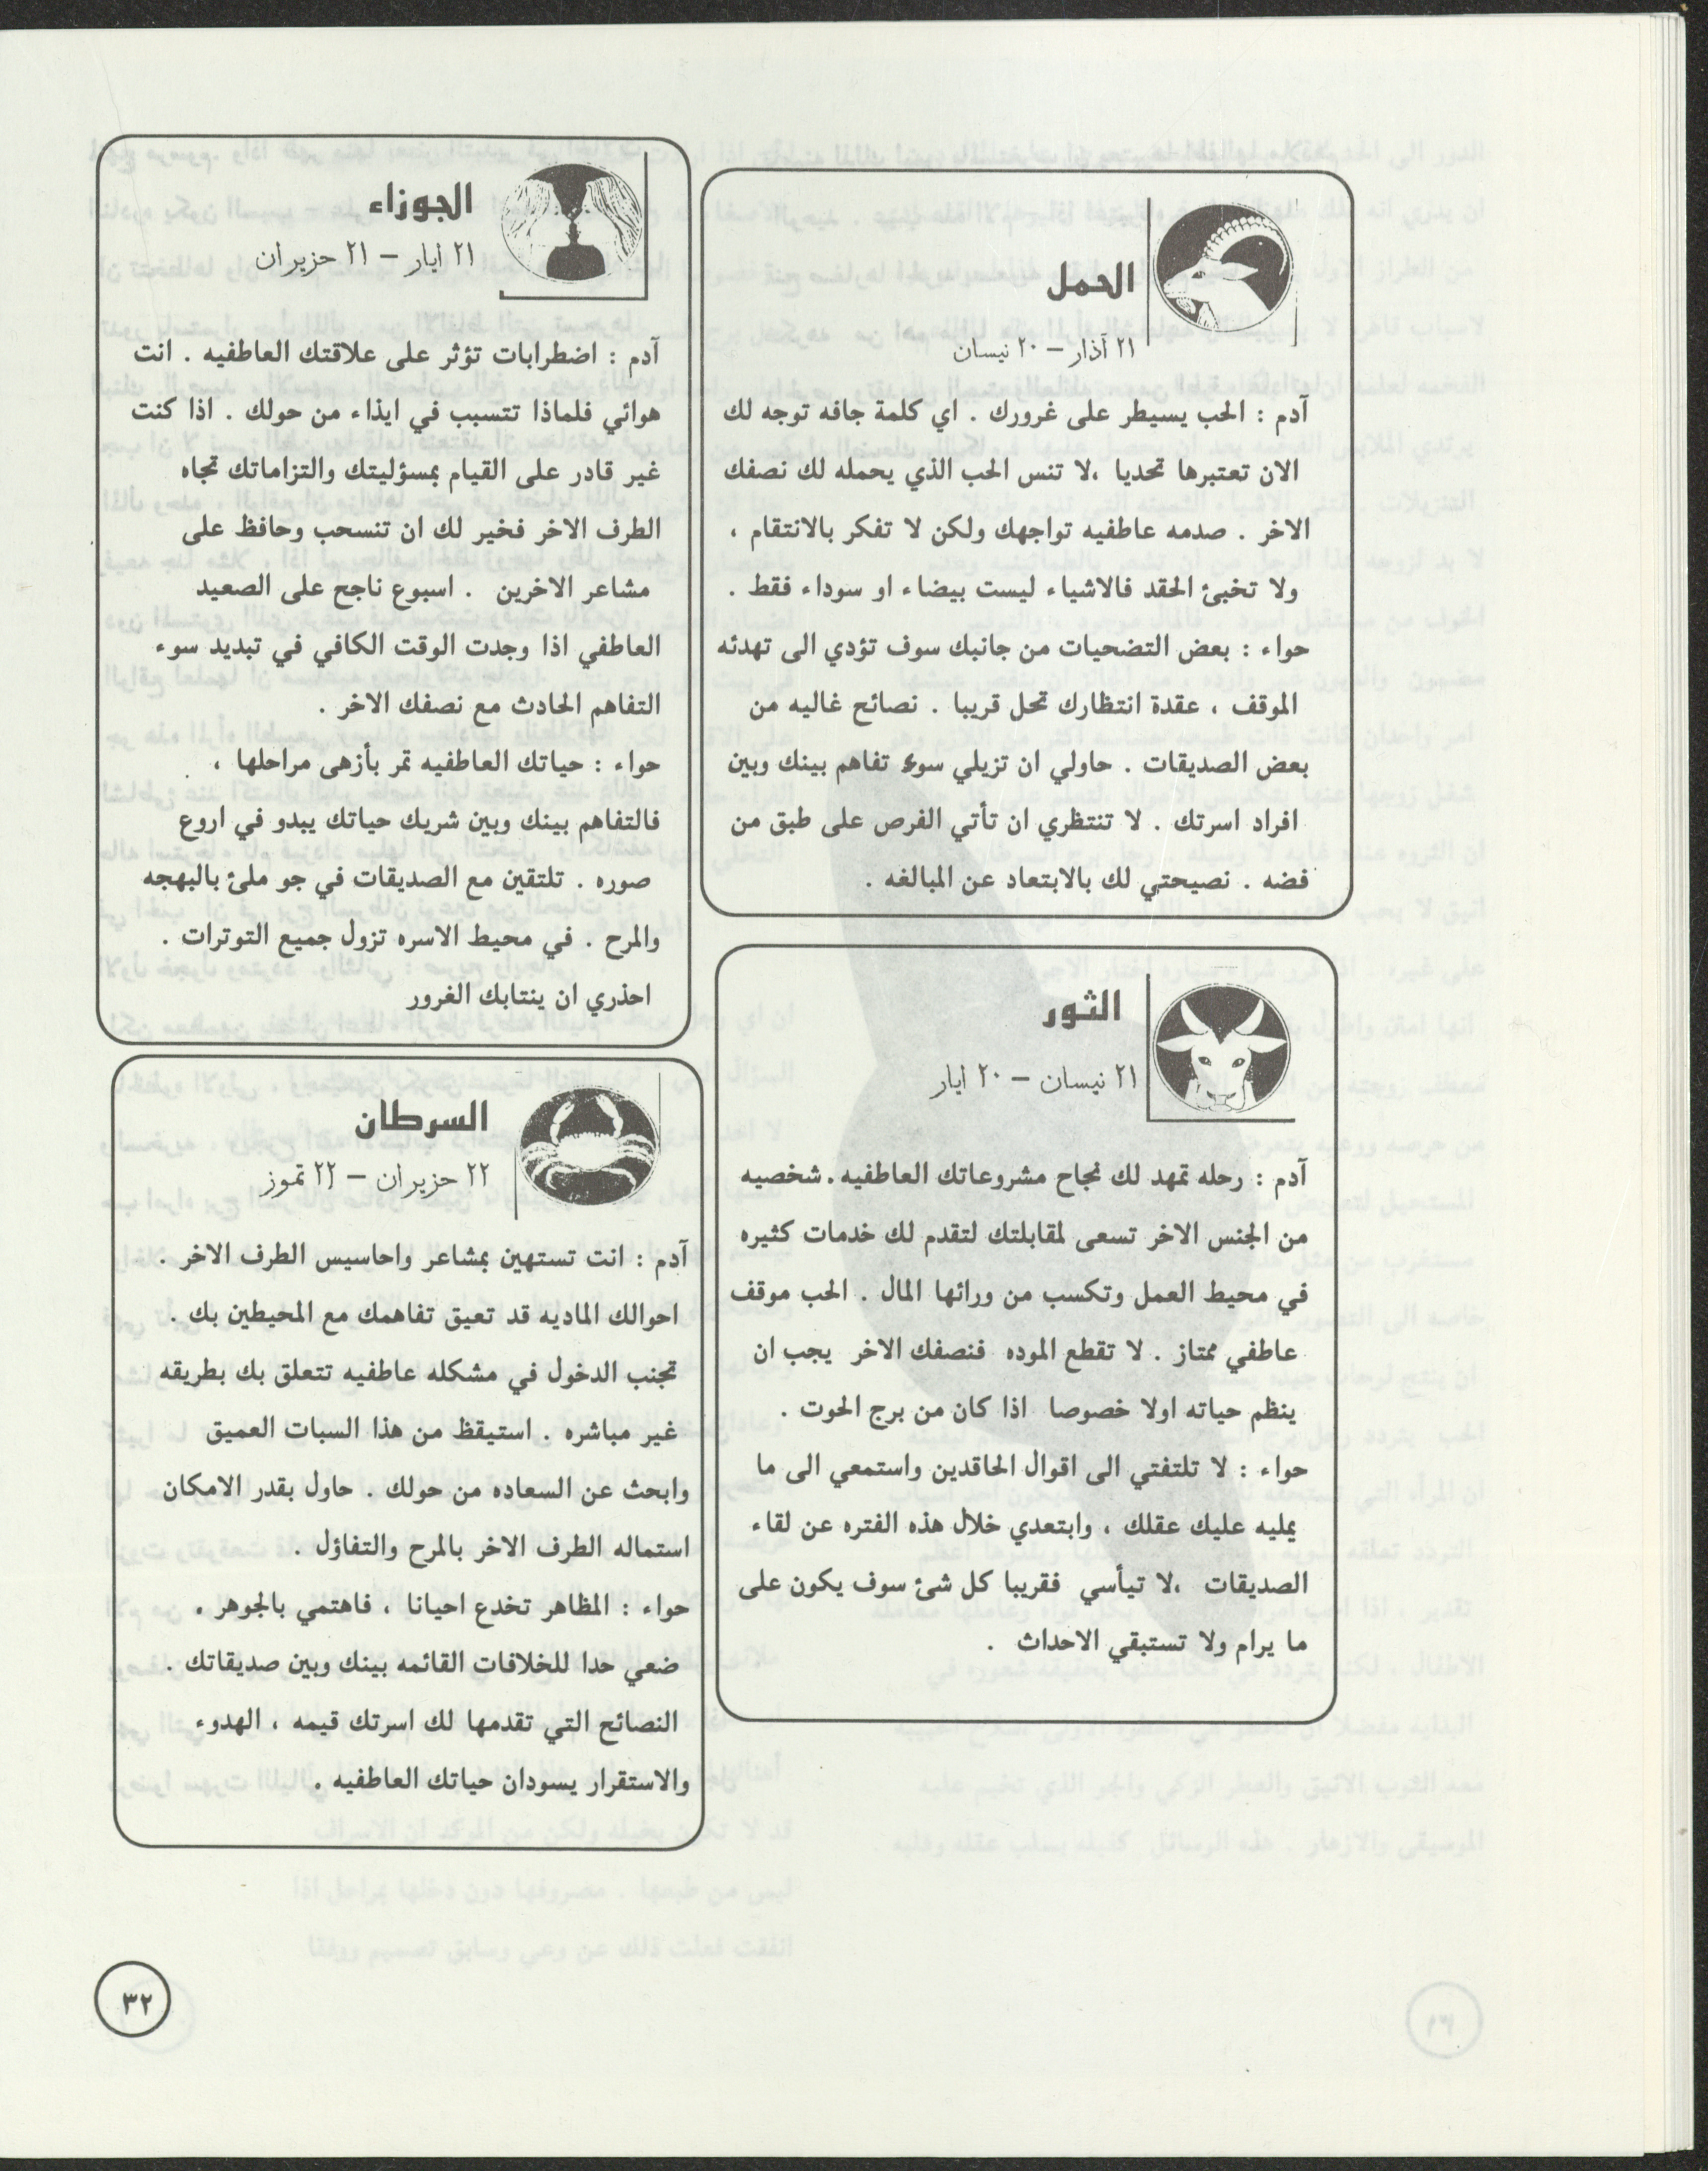 الحمل
٢١ آذار – ٢٠ نيسان
آدم : الحب يسيطر على غرورك . اي كلمة جافه توجه لك
الان تعتبرها تحديا ،لا تنس الحب الذي يحمله لك نصفك
الاخر . صدمه عاطفيه تواجهك ولكن لا تفكر بالانتقام ،
ولا تخبئ الحقد فالاشياء ليست بيضاء او سوداء فقط .
حواء : بعض التضحيات من جانبك سوف تؤدي الى تهدئه
الموقف ، عقدة انتظارك تحل قريبا . نصائح غاليه من
بعض الصديقات . حاولي ان تزيلي سوء تفاهم بينك وبين
افراد اسرتك . لا تنتظري ان تأتي الفرص على طبق من
فضه . نصيحتي لك بالابتعاد عن المبالغه .
الثور
٢١ نيسان – ٢٠ ايار
آدم : رحله تمهد لك نجاح مشروعاتك العاطفيه . شخصيه
من الجنس الاخر تسعى لمقابلتك لتقدم لك خدمات كثيره
في محيط العمل وتكسب من ورائها المال . الحب موقف
عاطفي ممتاز . لا تقطع الموده فنصفك الاخر يجب ان
ينظم حياته اولا خصوصا اذا كان من برج الحوت .
حواء : لا تلتفتي الى اقوال الحاقدين واستمعي الى ما
يمليه عليك عقلك ، وابتعدي خلال هذه الفتره عن لقاء
الصديقات ،لا تيأسي فقريبا كل شئ سوف يكون على
ما يرام ولا تستبقي الاحداث .
الجوزاء
٢١ ايار – ٢١ حزيران
آدم : اضطرابات تؤثر على علاقتك العاطفيه . انت
هوائي فلماذا تتسبب في ايذاء من حولك . اذا كنت
غير قادر على القيام بمسؤليتك والتزاماتك تجاه
الطرف الاخر فخير لك ان تنسحب وحافظ على
مشاعر الاخرين . اسبوع ناجح على الصعيد
العاطفي اذا وجدت الوقت الكافي في تبديد سوء
التفاهم الحادث مع نصفك الاخر .
حواء : حياتك العاطفيه تمر بأزهى مراحلها ،
فالتفاهم بينك وبين شريك حياتك يبدو في اروع
صوره . تلتقين مع الصديقات في جو ملئ بالبهجه
والمرح . في محيط الاسره تزول جميع التوترات .
احذري ان ينتابك الغرور
السرطان
٢٢ حزيران – ٢٢ تموز
آدم : انت تستهين بمشاعر واحاسيس الطرف الاخر .
احوالك الماديه قد تعيق تفاهمك مع المحيطين بك .
تجنب الدخول في مشكله عاطفيه تتعلق بك بطريقه
غير مباشره . استيقظ من هذا السبات العميق
وابحث عن السعاده من حولك . حاول بقدر الامكان
استماله الطرف الاخر بالمرح والتفاؤل .
حواء : المظاهر تخدع احيانا ، فاهتمي بالجوهر .
ضعي حدا للخلافات القائمه بينك وبين صديقاتك .
النصائح التي تقدمها لك اسرتك قيمه ، الهدوء
والاستقرار يسودان حياتك العاطفيه .
٣٢